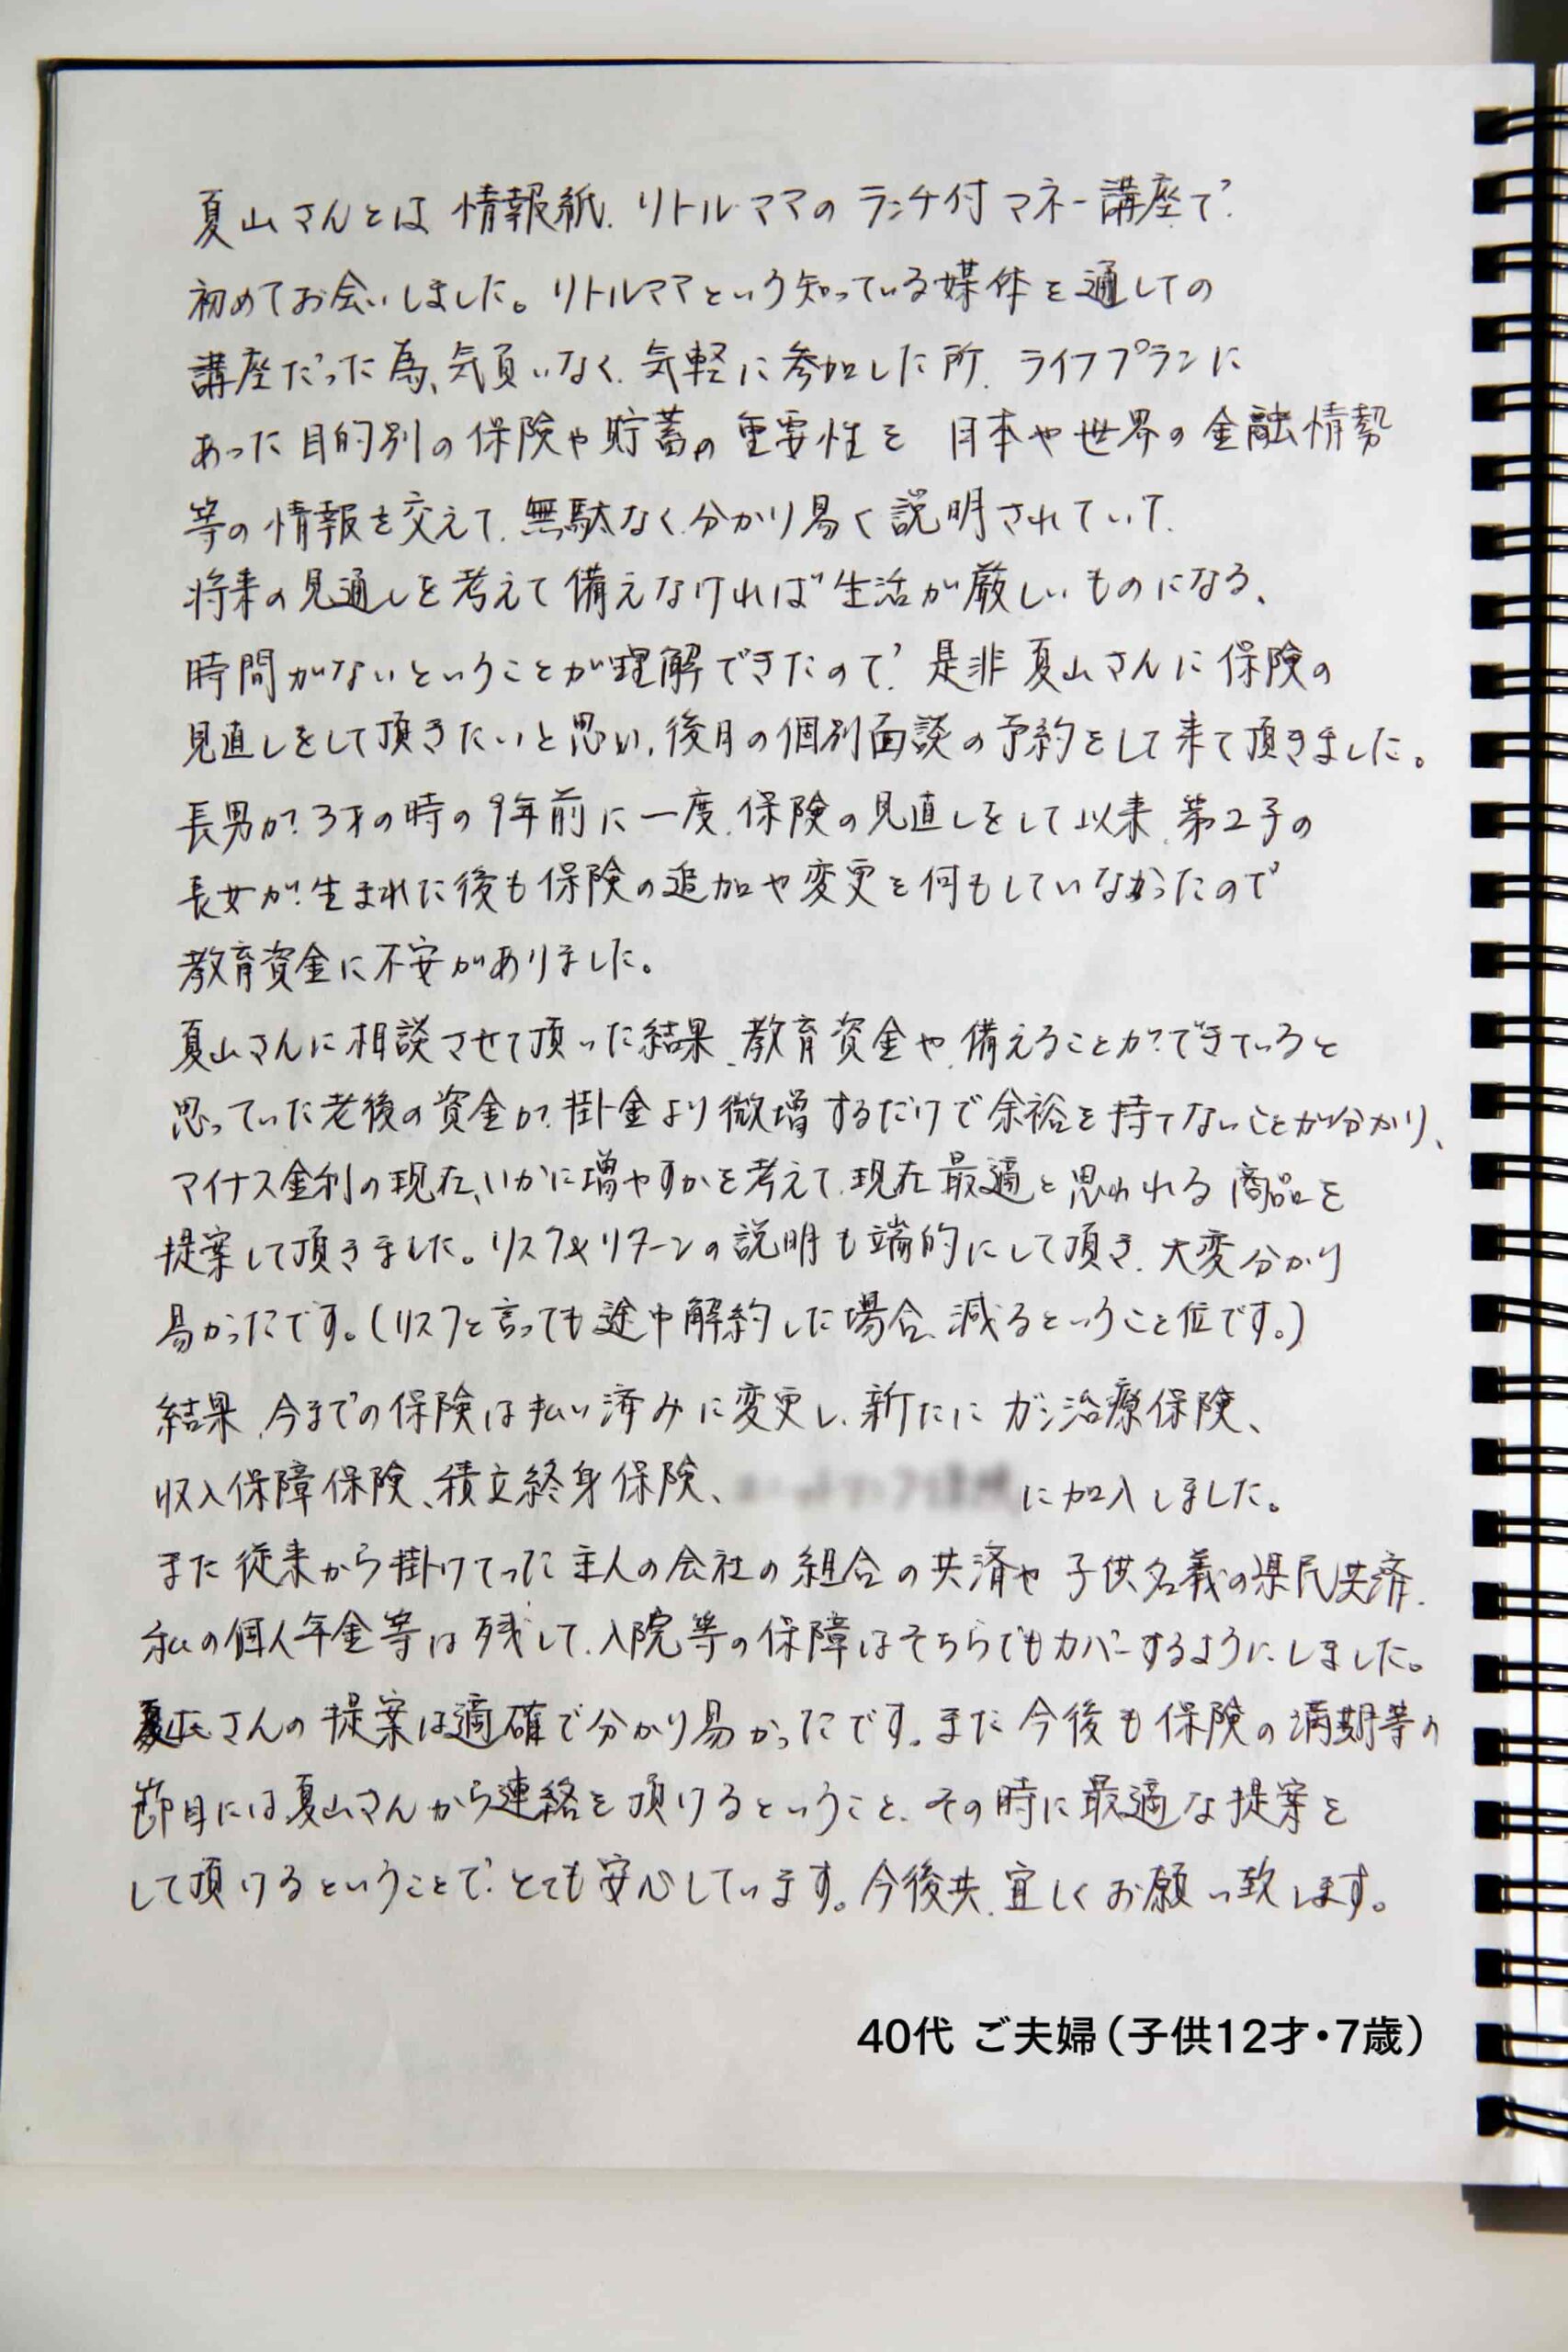 夏山さんとは 情報紙、リトル・ママの ランチ付 マネー講座で、
初めてお会いしました。リトルママという知っている媒体を通しての
講座だった為、気負いなく、気軽に参加した所、ライフプランに
あった目的別の保険や貯蓄の重要性を 日本や世界の金融情勢
等の情報を交えて、無駄なく、分かり易く説明されていて、
将来の見通しを考えて備えなければ生活が厳しいものになる、
時間がないということが理解できたので、是非夏山さんに保険の
見直しをして頂きたいと思い、後日の個別面談の予約をして来て頂きました。
長男が3才の時の9年前に一度、保険の見直しをして以来、第2子の
長女が生まれた後も保険の追加や変更を何もしていなかったので
教育資金に不安がありました。
夏山さんに相談させて頂いた結果、教育資金や、備えることができていると
思っていた老後の資金が掛金より微増するだけで余裕を持てないことが分かり、
マイナス金利の現在、いかに増やすかを考えて、現在最適と思われる商品を
提案して頂きました。リスク&リターンの説明も端的にして頂き、大変分かり
易かったです。(リスクと言っても途中解約した場合、減るということ位です。)
結果、今までの保険は払い済みに変更し、新たに ガン治療保険、
収入保障保険、積立終身保険、 に加入しました。
また従来から掛けてった主人の会社の組合の共済や 子供名義の県民共済、
私の個人年金等は残して、入院等の保障はそちらでもカバーするようにしました。
夏山さんの提案は適確で分かり易かったです。また今後も保険の満期等の
節目には夏山さんから連絡を頂けるということ、その時に最適な提案を
して頂けるということで、とても安心しています。今後共、宜しくお願い致します。
40代 ご夫婦(子供12才・7歳)